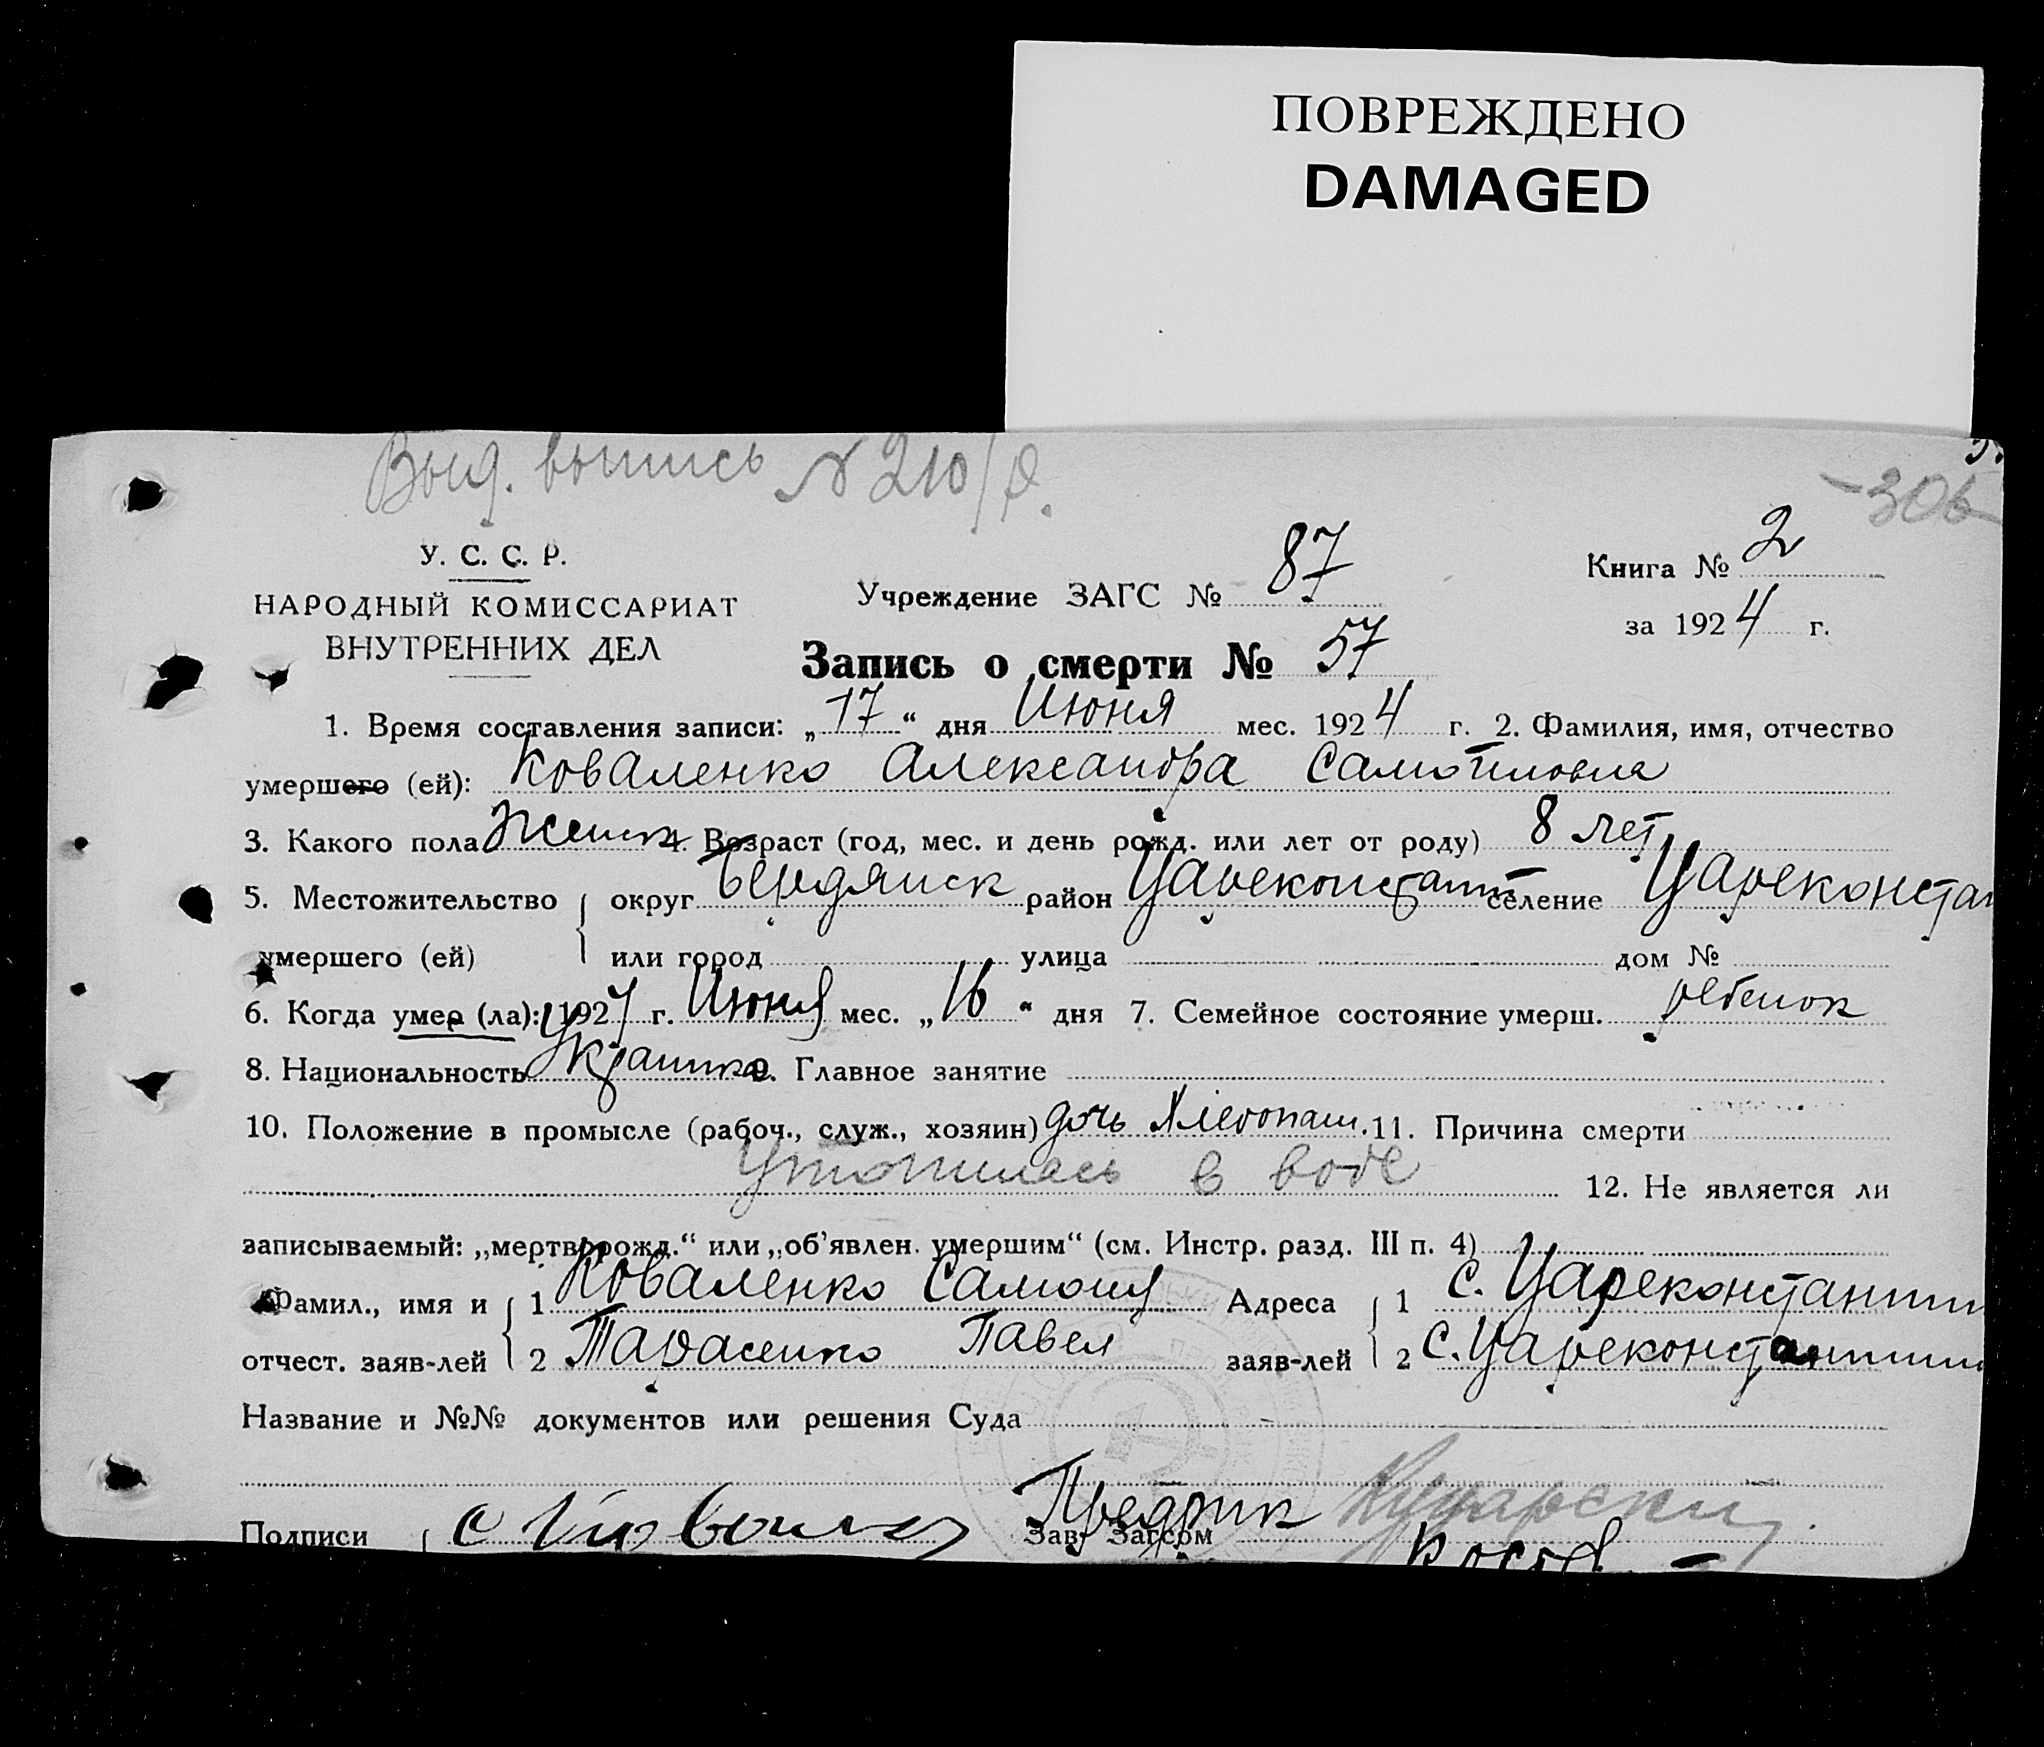 ПОВРЕЖДЕНО
DAMAGED
Выд. выпись № 210/д.
306
У. С. С. Р.
НАРОДНЫЙ КОМИССАРИАТ
ВНУТРЕННИХ ДЕЛ
Учреждение ЗАГС № 87
Книга № 2
за 1924 г.
Запись о смерти № 57
1. Время составления записи: „17“ дня Июня мес. 1924 г. 2. Фамилия, имя, отчество
умершего (ей): Коваленко Александра Самойловна
3. Какого пола Женск 4. Возраст (год, мес. и день рожд. или лет от роду) 8 лет
5. Местожительство округ Бердянск район Цареконстант селение Цареконстан
умершего (ей) или город улица дом №
6. Когда умер (ла): 1924 г. Июня мес. „16“ дня 7. Семейное состояние умерш. ребенок
8. Национальность Украинка 9. Главное занятие
10. Положение в промысле (рабоч., служ., хозяин) дочь Хлебопаш. 11. Причина смерти
Утопилась в воде 12. Не является ли
записываемый: „мертворожд.“ или „об'явлен. умершим“ (см. Инстр. разд. III п. 4)
Фамил., имя и 1 Коваленко Самоил Адреса 1 с. Цареконстантин
отчест. заяв-лей 2 Тарасенко Павел заяв-лей 2 с. Цареконстантин
Название и №№ документов или решения Суда
Подписи Зав. Загсом